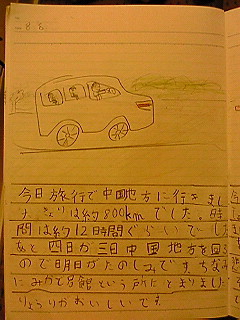 今日旅行で中国地方に行きまし
た。きょりは約800kmでした。時
間は約12時間ぐらいでした
あと四日か三日中国地方を回る
ので明日がたのしみです。ちなみ
に み 館という所にとまりました
りょうりがおいしいです